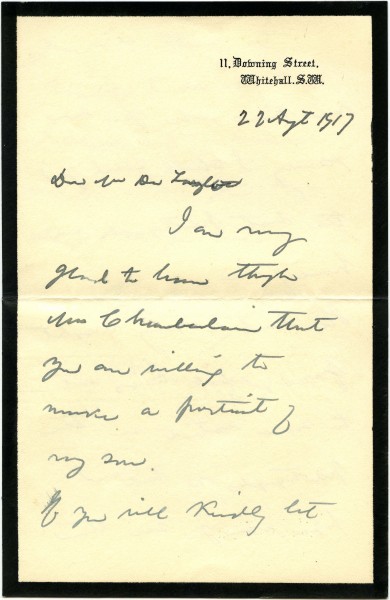 11. Downing Street,
Whitehall. S.W.
22 Augt 1917
Dear Mr De Laszlo
I am very
glad to hear through
Mrs Chamberlain that
you are willing to
make a portrait of
my son.
If you will kindly let